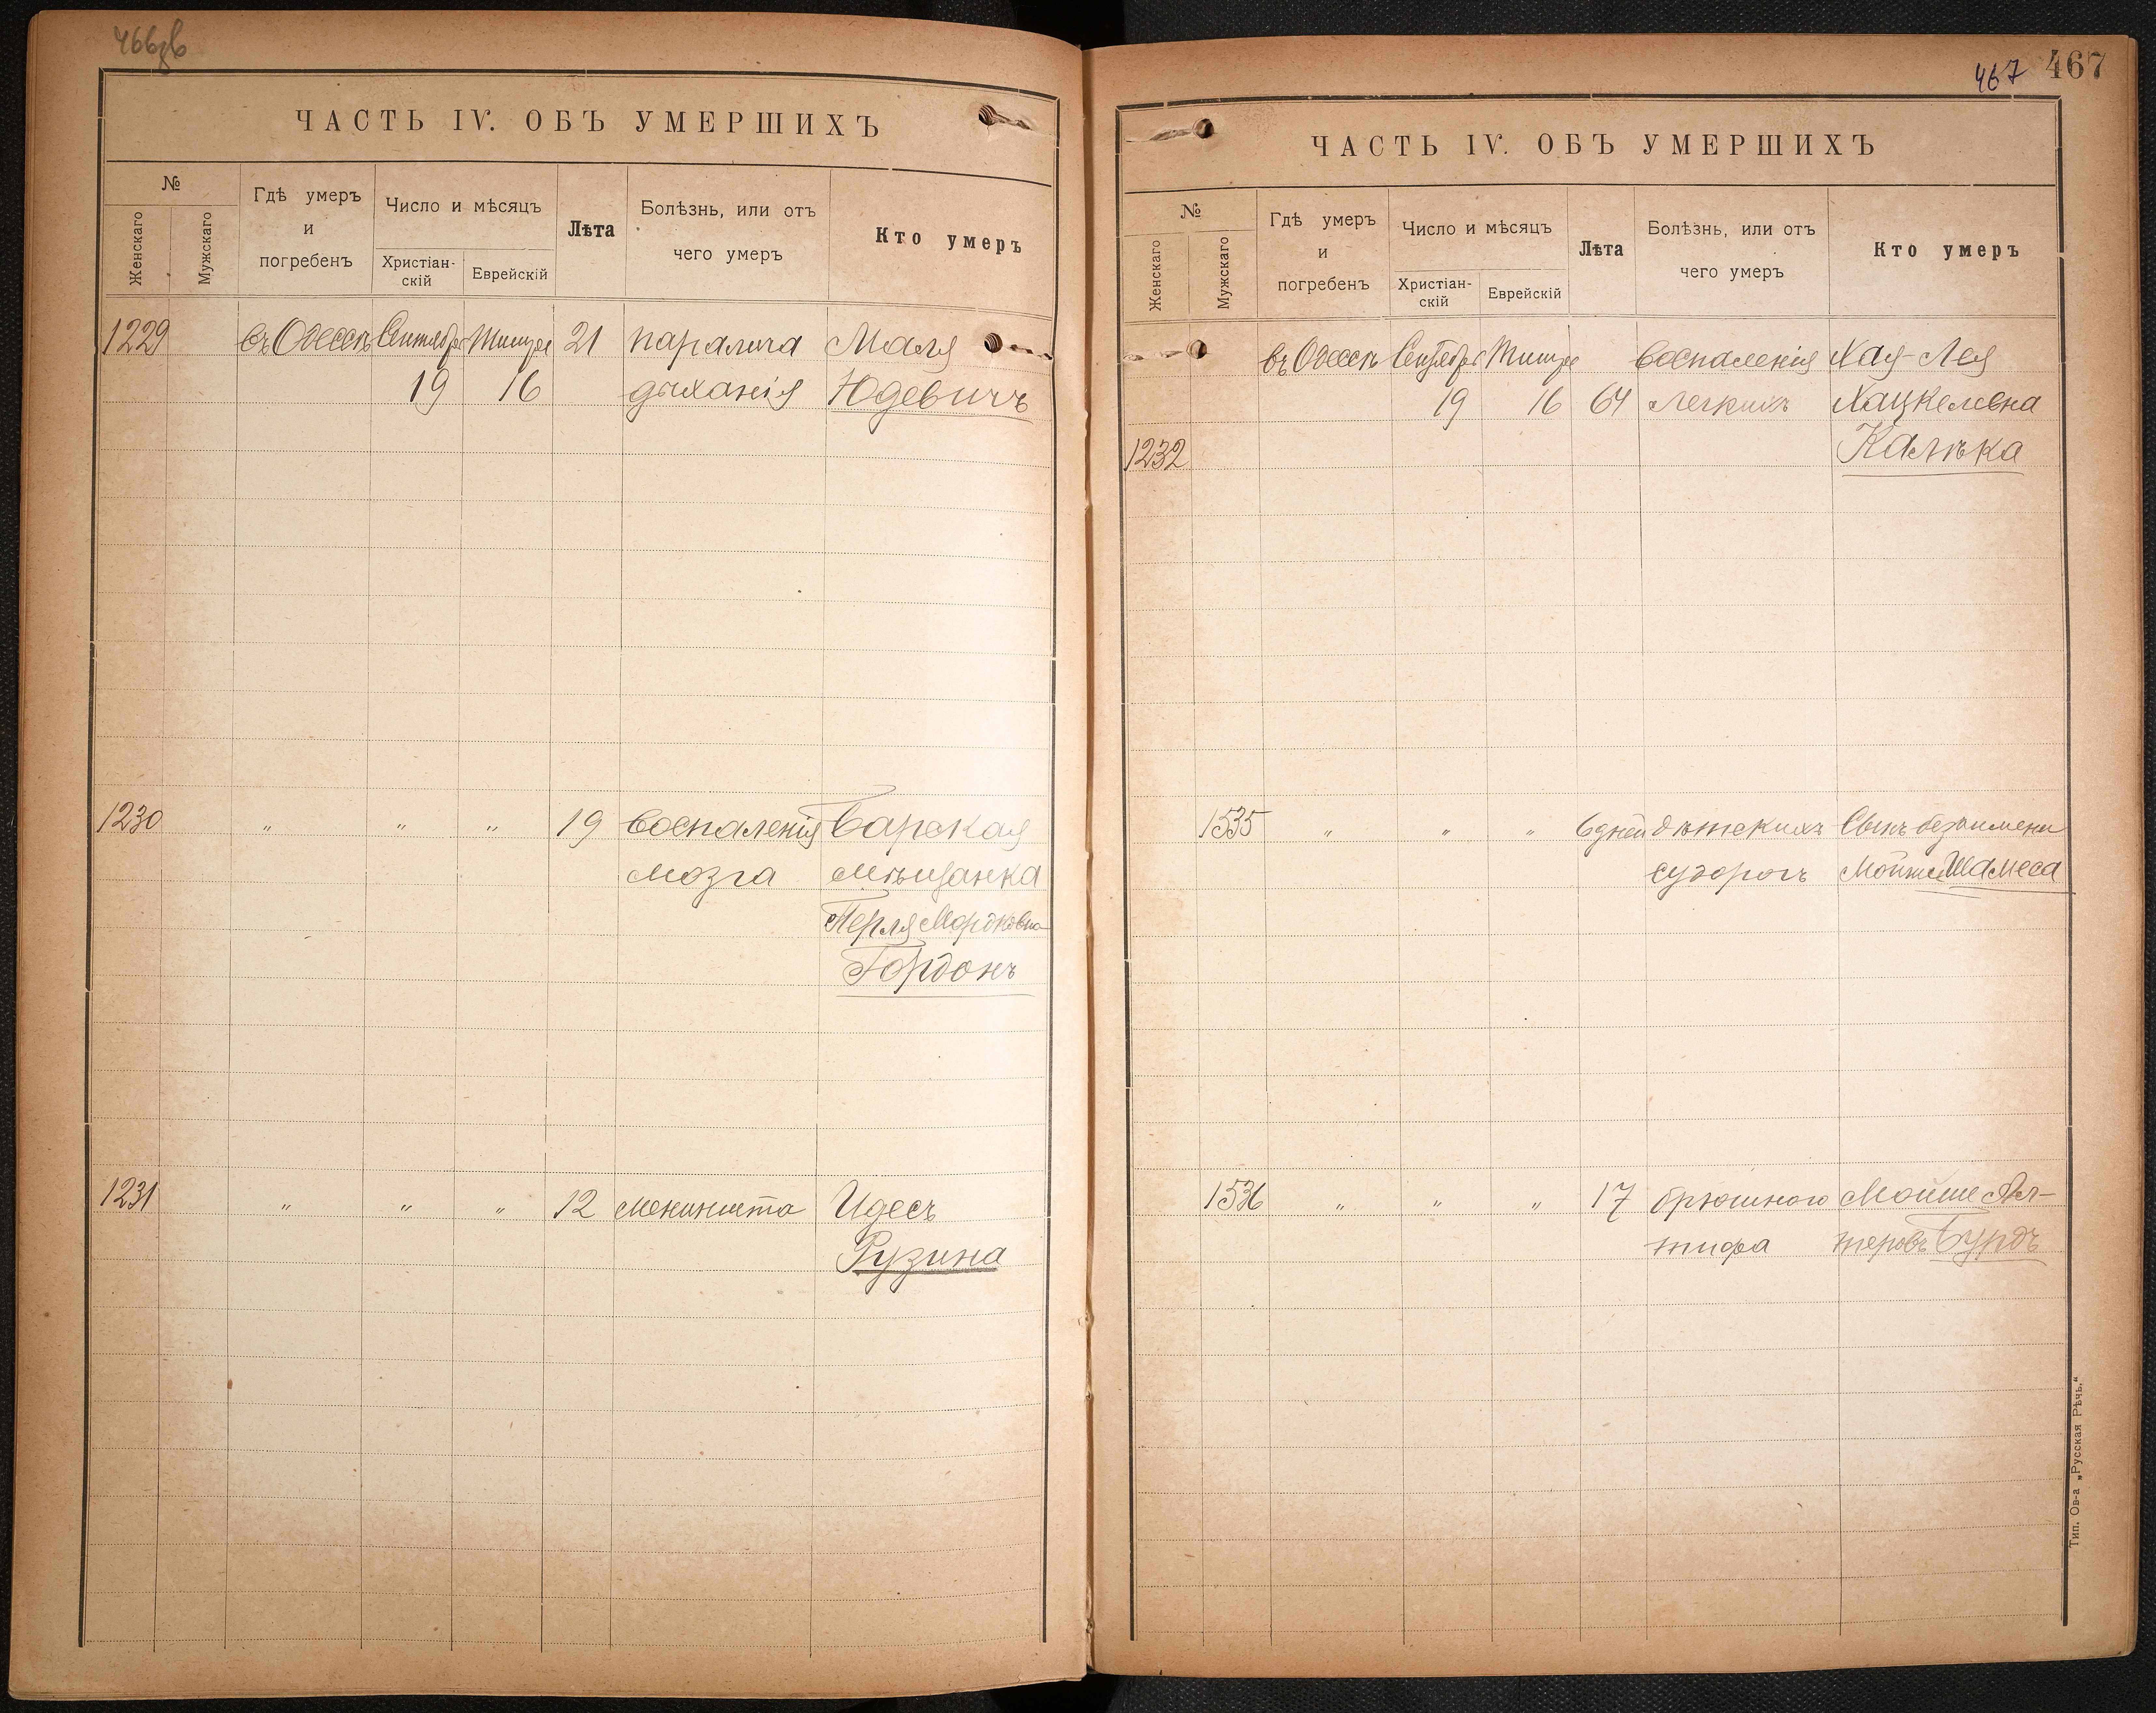 ЧАСТЬ IV. ОБЪ УМЕРШИХЪ
№
Женскаго
Мужскаго
Гдѣ умеръ
и
погребенъ
Число и мѣсяцъ
Христіан-
скій
Еврейскій
Лѣта
Болѣзнь, или отъ
чего умеръ
Кто умеръ
1229 въ Одессѣ Сентября Тишре 21 паралича Маля
19 16 дыханія Юдевичъ
1230 " " " 19 воспаленія Барская
мозга мѣщанка
Перля Мордковна
Гордонъ
1231 " " " 12 менингита Идесъ
Рузина
467 467
ЧАСТЬ IV. ОБЪ УМЕРШИХЪ
№
Женскаго
Мужскаго
Гдѣ умеръ
и
погребенъ
Число и мѣсяцъ
Христіан-
скій
Еврейскій
Лѣта
Болѣзнь, или отъ
чего умеръ
Кто умеръ
въ Одессѣ Сентября Тишре воспаленія Хая-Лея
19 16 64 легкихъ Хацкелевна
1232 Калѣка
1535 " " " 6 дней дѣтскихъ Сынъ безъ имени
судорогъ Мойше Шамеса
1536 " " " 17 брюшного Мойше Ал-
тифа теровъ Бурдъ
Тип. Ов-а „Русская Рѣчь."